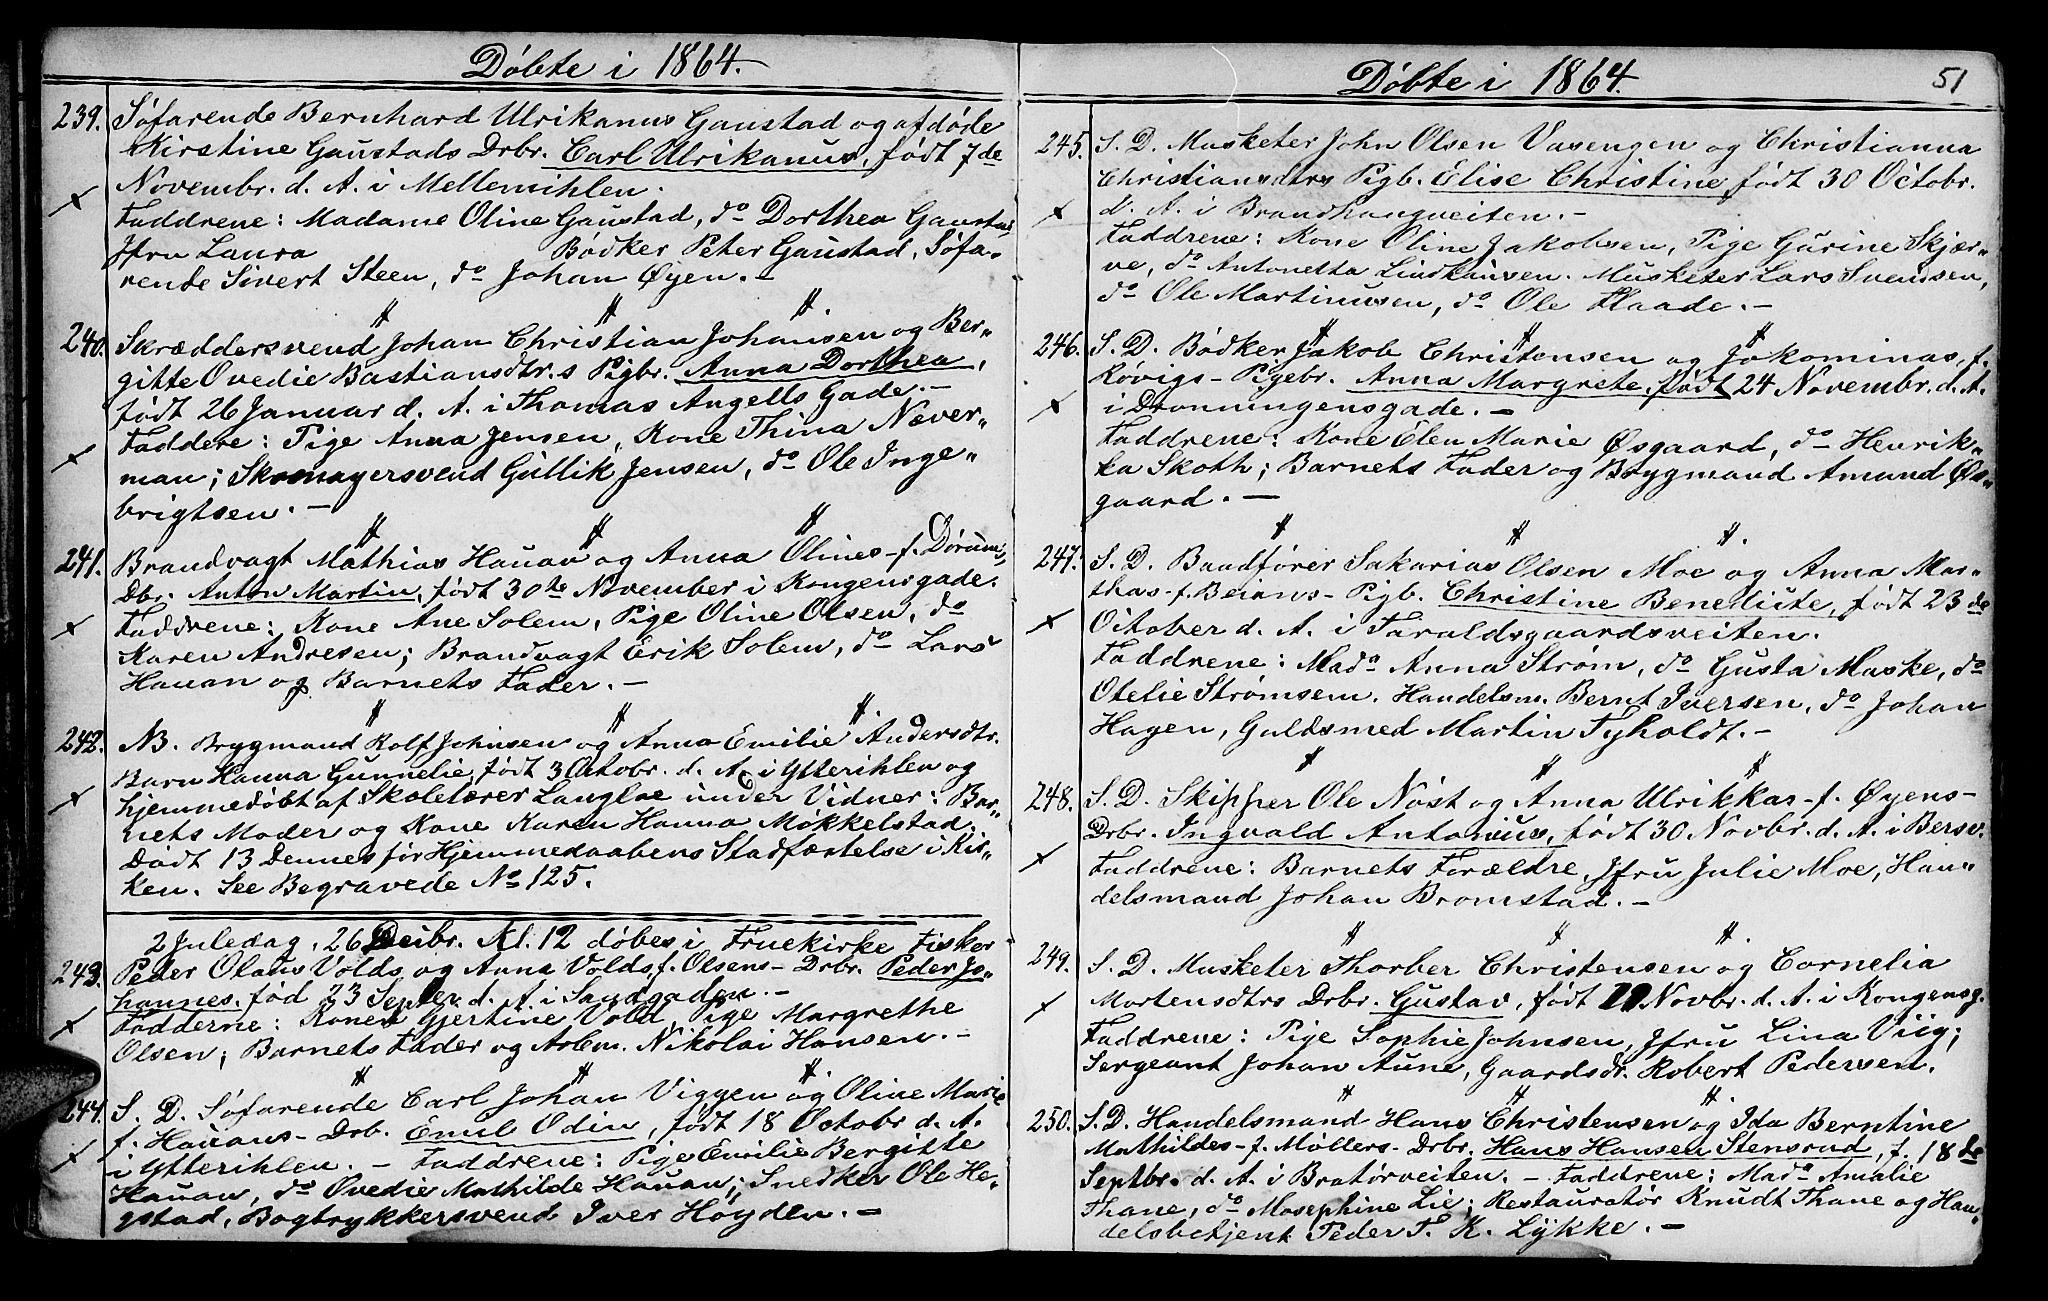 Döbte i 1864.
239. Söfarende Bernhard Ulrikanus Gaustad og afdöde
Kirstine Gaustads Drbr. Carl Ulrikanus, født 7de
Novembr. d. A. i Mellemihlen.
Faddrene: Madame Oline Gaustad, do Dorthea Gaustad,
Jfru Laura Bödker Peter Gaustad, Söfa-
rende Sivert Steen, do Johan Øyen. -
240. Skræddersvend Johan Christian Johansen og Ber-
gitte Ovedie Bastiansdtr.s Pigbr. Anna Dorthea,
født 26 Januar d. A. i Thomas Angells Gade. -
Faddere: Pige Anna Jensen, Kone Thina Næver-
man; Skomagersvend Gullik Jensen, do Ole Inge-
brigtsen. -
241. Brandvagt Mathias Hauan og Anna Olines-f. Dørums,
Dbr. Anton Martin, født 30te November i Kongensgade.
Faddrene: Kone Ane Solem, Pige Oline Olsen, do
Karen Andresen; Brandvagt Erik Solem, do Lars
Hauan og Barnets Fader. -
242. NB. Brygmand Rolf Johnsen og Anna Emilie Andersdtr.
Barn Hanna Gunnelie, født 3 Octobr. d. A. i Ytterihlen og
hjemmedøbt af Skolelærer Langlae under Vidner: Bar-
nets Moder og Kone Karen Hanna Møkkelstad.
Dødt 13 Dennes før Hjemmedaabens Stadfæstelse i Kir-
ken. See Begravede No 125.
2 Juledag, 26 Decbr. Kl. 12 döbes i Fruekirke Fisker
243. Peder Olaus Volds og Anna Volds f. Olsens- Drbr. Peder Jo-
hannes, fød 23 Septbr. d. A. i Sandgaden. -
Fadderne: Konen Gjertine Vold, Pige Margrethe
Olsen; Barnets Fader og Arbm. Nikolai Hansen. -
244. S. D. Söfarende Carl Johan Viggen og Oline Marie
f. Hauans- Drb. Emil Odin, født 18 Octobr d. A.
i Ytterihlen. - Faddrene: Pige Emilie Bergitte
Hauan, do Ovedie Mathilde Hauan; Snedker Ole He-
gstad, Bogtrykkersvend Iver Høyden. -
Döbte i 1864.
51
245. S. D. Musketer John Olsen Vasengen og Christianna
Christiansdtrs Pigb. Elise Christine født 30 Octobr.
d. A. i Brandhaugveiten. -
Faddrene: Kone Oline Jakobsen, Pige Gurine Skjær-
ve, do Antonetta Lindkansen. Musketer Lars Svendsen,
do Ole Martinusen, do Ole Flaade. -
246. S. D. Bödker Jakob Christensen og Jakominas, f.
Røvigs- Pigebr. Anna Margrete, født 24 Novembr. d. A.
i Dronningensgade. -
Faddrene: Kone Elen Marie Øsgaard, do Henrik-
ka Skoth; Barnets Fader og Brygmand Amund Øs-
gaard. -
247. S. D. Bandfører Sakarias Olsen Moe og Anna Mar-
thas-f. Beians- Pigb. Christine Benedicte, født 23de
October d. A. i Taraldsgaardsveiten.
Faddrene: Mada Anna Strøm, do Gusta Maske, do
Otelie Strømsem. Handelsm. Bernt Iversen, do Johan
Hagen, Guldsmed Martin Tyholdt. -
248. S. D. Skipper Ole Nöst og Anna Ulrikkas-f. Øyens-
Drbr. Ingvald Antonius, født 30 Novbr. d. A. i Bersv.
Faddrene: Barnets Forældre, Jfru Julie Moe, Han-
delsmand Johan Bromstad. -
249. S. D. Musketer Thorber Christensen og Cornelia
Mortensdtrs Drbr. Gustav, født 20 Novbr. d. A. i Kongensg.
Faddrene: Pige Sophie Johnsen, Jfru Lina Viig;
Sergeant Johan Aune, Gaardsdr. Robert Pedersen.
250. S. D. Handelsmand Hans Christensen og Ida Berntine
Mathildes-f. Møllers- Drbr. Hans Hansen Stensrud, f. 18de
Septbr. d. A. i Bratørveiten. - Faddrene: Mada Amalie
Thane, do Mosephine Lie; Restauratør Knudt Thane og Han-
delsbetjent Peder T. K. Lykke. -